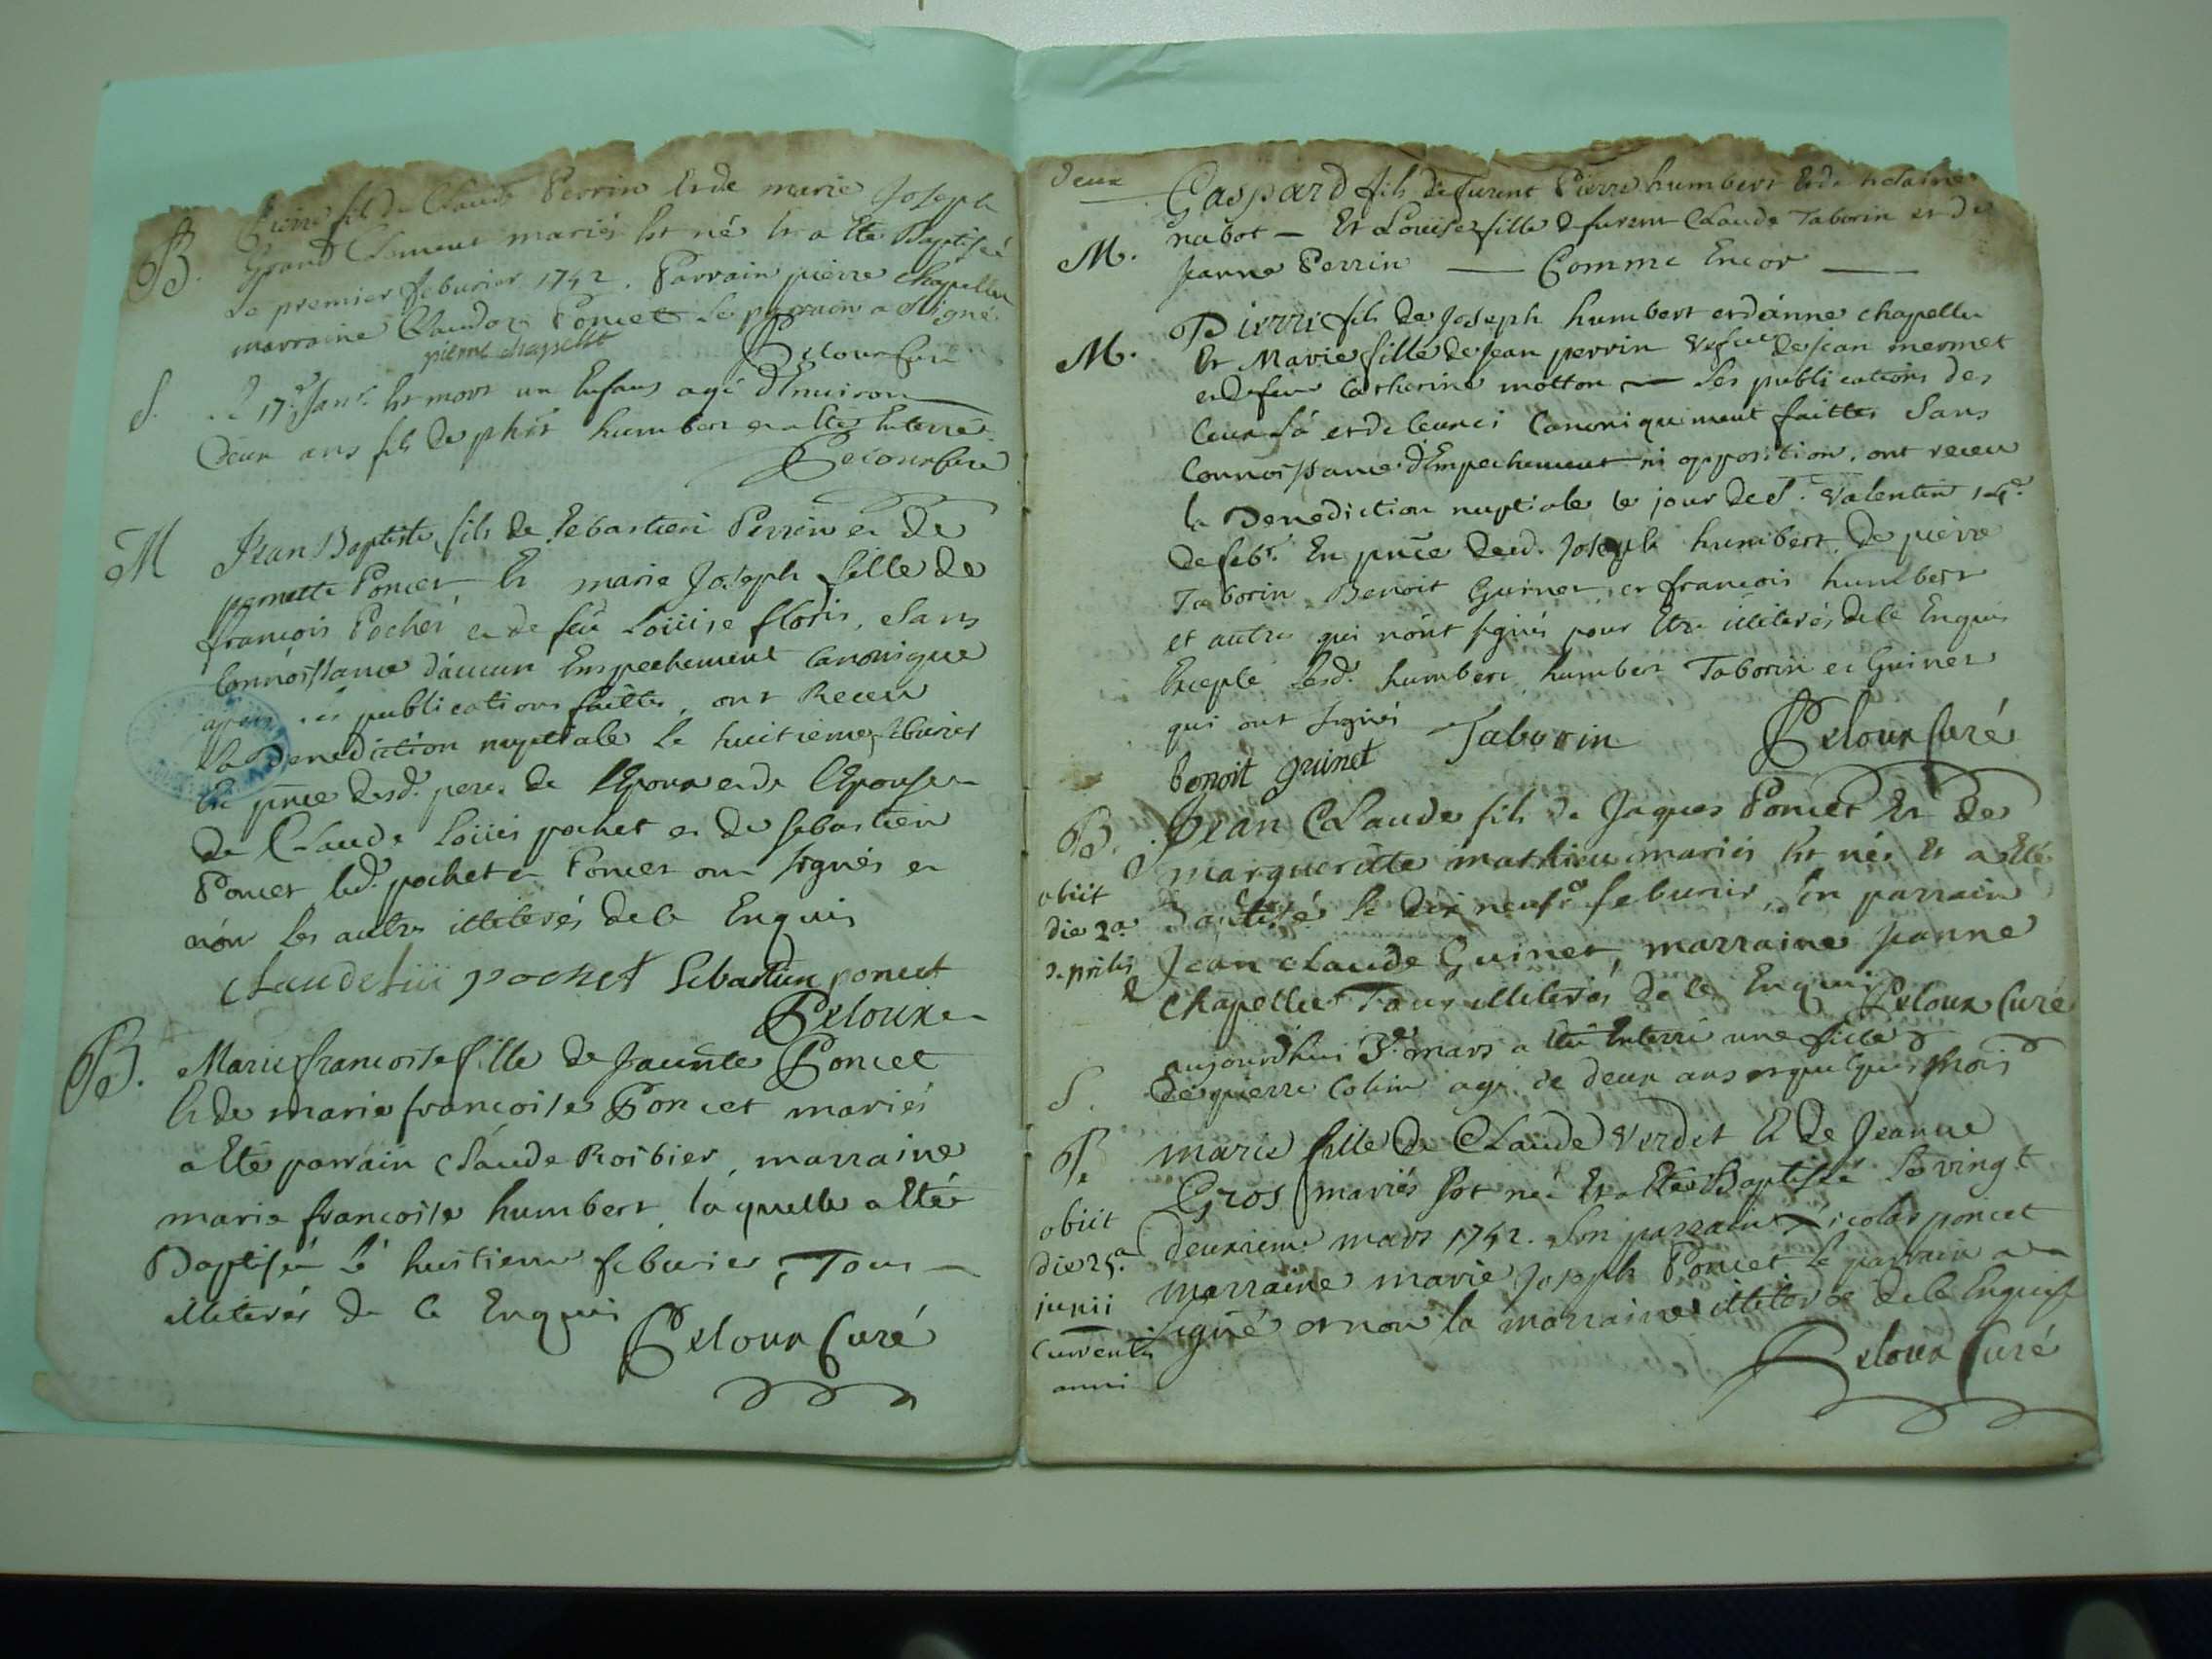 B. Pierre fils de Claude Perrin Et de marie Joseph
Grand Clement mariés Est né Et a Eté Baptisé
Le premier feburier 1742. Parrain pierre Chapellu
marraine Claudoz Poncet Le parrain a signé
pierre chapellut Peloux Curé
S. Le 17e Janr. Est mort un Enfans agé d'Environ
deux ans fils de phit humbert et a Eté Enterré
Peloux Curé
M Jean Baptiste fils de Sebastien Perrin et De
pernette Poncet, Et marie Joseph fille de
françois Pochet et de feu Loüise floris, Sans
Connoissance d'aucun Empechement Canonique
apres les publications faittes, ont Receu
la Benediction nuptiale le huitieme feburier
En pnce desd. peres de l'Epoux et de l'Epouse
De Claude Loüis pochet et de Sebastien
Poncet led. pochet et Poncet ont signés et
non les autres illiterés de le Enquis
Claude Luii pochet Sebastien poncet
Peloux
B. Marie françoise fille de Jacunte Poncet
Et de marie françoise Poncet mariés
a Eté parrain Claude Rosbier, marraine
marie françoise humbert, laquelle a Eté
Baptisée le huitieme feburier, Tous
illiterés de le Enquis
Peloux Curé
deux
Gaspard fils de furent Pierre humbert Et de
nabot — Et Louise fille de furent Claude Taborin et de
M. Jeanne Perrin — Comme Encor —
M. Pierre fils de Joseph humbert et d'anne chapellu
Et Marie fille de Jean perrin vefue de Jean mermet
et de feu Catherine motton — Les publications des
Ceux là et de Ceuxci Canoniquement faittes Sans
Connoissance d'Empechement ni opposition, ont receu
la Benediction nuptiale le jour de S. Valentin 14e
de febr. En pnce dud. Joseph humbert, de pierre
Taborin Benoit Guinet, et françois humbert
et autres qui n'ont signés pour Etre illiterés de le Enquis
Excepté Lesd. humbert humbert Taborin et Guinet
qui ont signés
benoit guinet Taborin Peloux Curé
B. Jean Claude fils de Jaques Poncet Et de
marguerite mathieu mariés Est né Et a Eté
obiit
die 2a
aprilis
Baptisé le dix neufe feburier, Son parrain
Jean claude Guinet, marraine Jeanne
chapellu Tous illiterés de le Enquis Peloux Curé
S. aujourd'hui 3e mars a Eté Enterré une fille
de pierre Colin agé de deux ans et quelques mois
B. marie fille de Claude Verdet Et de Jeanne
Gros mariés Est né Et a Eté Baptisée Le vingt
obiit
die 25a
junii
currentis
anni
deuxieme mars 1742. Son parrain Nicolas poncet
marraine marie Joseph Poncet le parrain a
signé et non la marraine illiterée de le Enquise
Peloux Curé